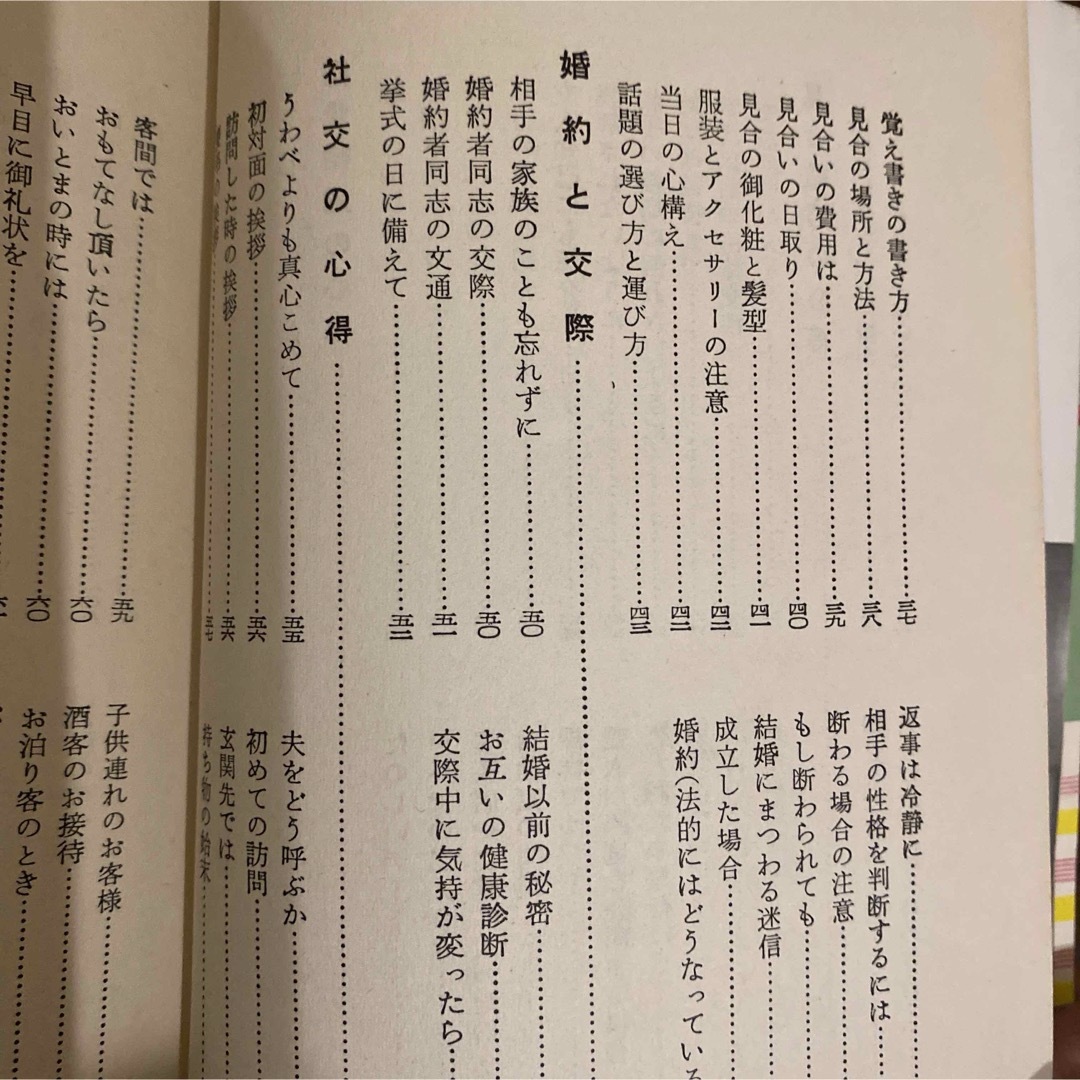 覚え書きの書き方……三七
見合の場所と方法……三八
見合いの費用は……三九
見合いの日取り……四〇
見合の御化粧と髪型……四一
服装とアクセサリーの注意……四二
当日の心構え……四二
話題の選び方と運び方……四三
返事は冷静に……
相手の性格を判断するには……
断わる場合の注意……
もし断わられても……
結婚にまつわる迷信……
成立した場合……
婚約(法的にはどうなってい
婚約と交際……
相手の家族のことも忘れずに……五〇
婚約者同志の交際……五〇
婚約者同志の文通……五一
挙式の日に備えて……五二
結婚以前の秘密……
お互いの健康診断……
交際中に気持が変ったら……
社交の心得……
うわべよりも真心こめて……五五
初対面の挨拶……五六
訪問した時の挨拶……五六
五七
夫をどう呼ぶか……
初めての訪問……
玄関先では……
持ち物の始末……
客間では……五九
おもてなし頂いたら……六〇
おいとまの時には……六〇
早目に御礼状を……
子供連れのお客様……
酒客のお接待……
お泊り客のとき……